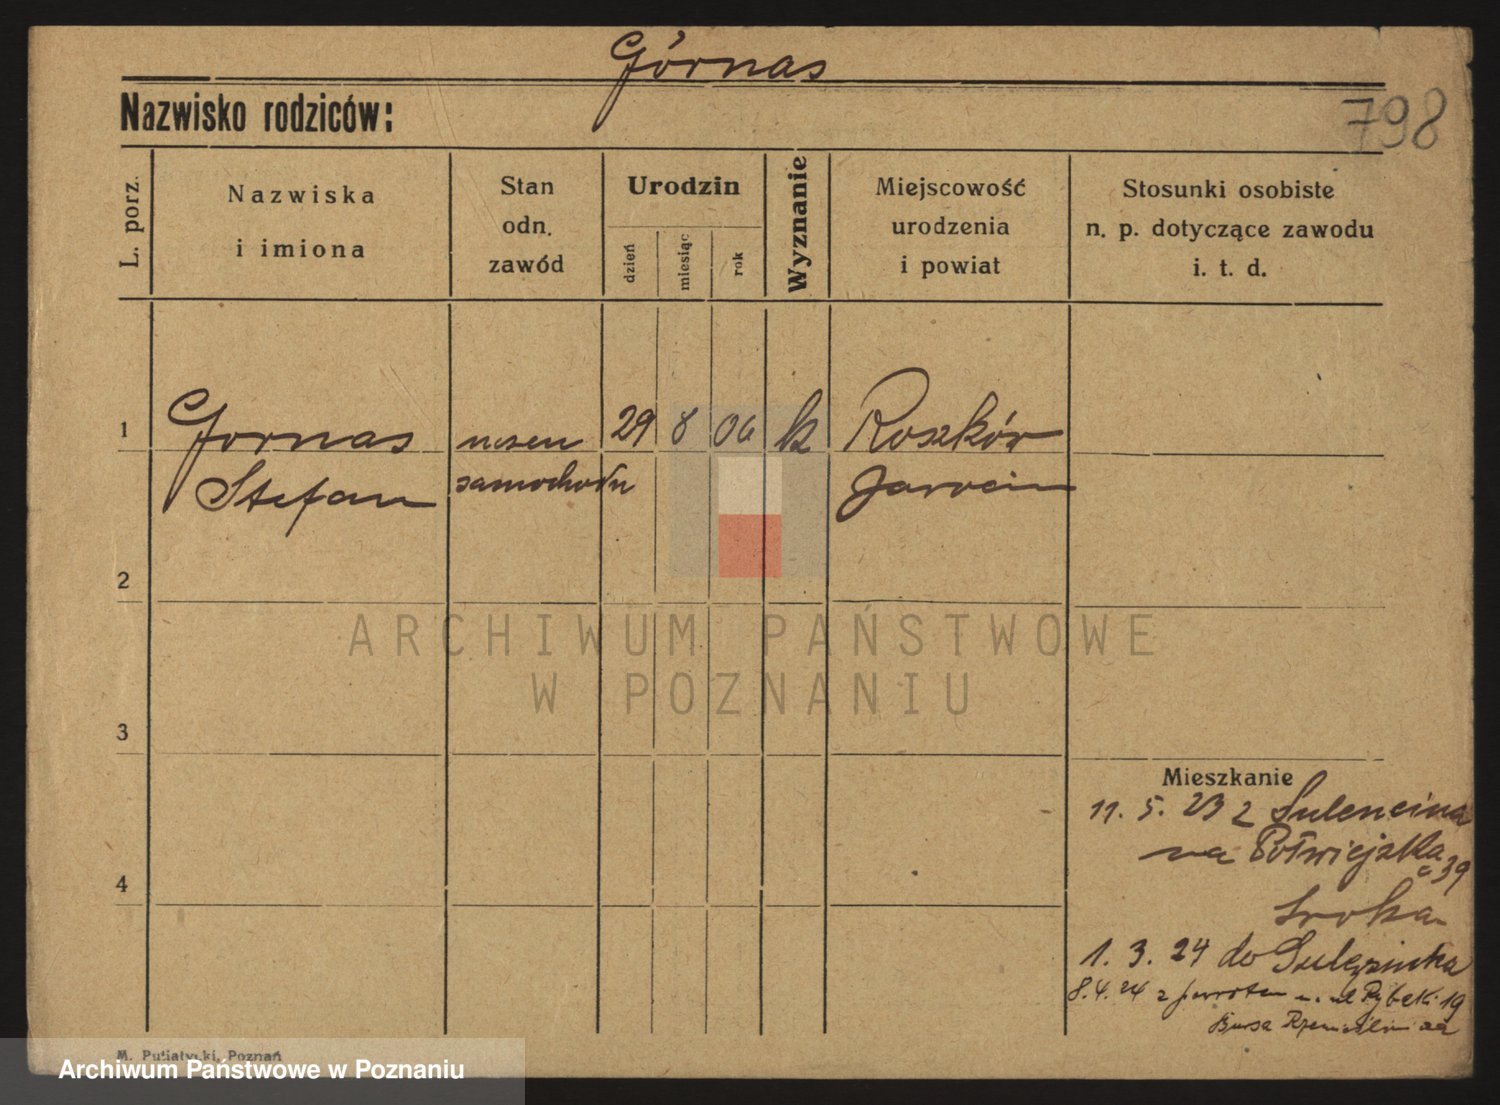 Górnas
Nazwisko rodziców:
798
L. porz.
Nazwiska
i imiona
Stan
odn.
zawód
Urodzin
dzień
miesiąc
rok
Wyznanie
Miejscowość
urodzenia
i powiat
Stosunki osobiste
n. p. dotyczące zawodu
i. t. d.
1
Gornas
uczeń
29
8
06
k
Roszków
Stefan
samochodu
Jarocin
2
ARCHIWUM PAŃSTWOWE
W POZNANIU
3
Mieszkanie
11. 5. 23 z Sulencina
na Półwiejska
39
Sroka
4
1. 3. 24 do Sulęcinka
8.4.24 z powrotem ul Rybaki 19
Bursa Rzemieślnicza
M. Putiatycki, Poznań
Archiwum Państwowe w Poznaniu